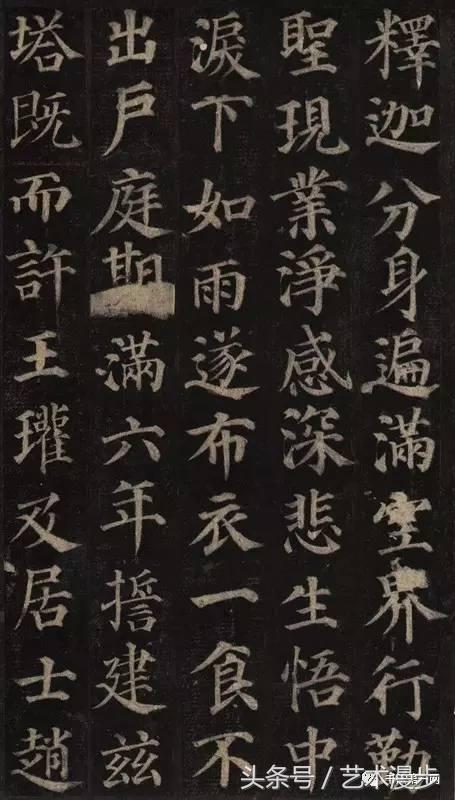 釋迦分身遍滿空界行勤
聖現業淨感深悲生悟中
淚下如雨遂布衣一食不
出戶庭期滿六年誓建茲
塔既而許王瓘及居士趙
头条号 / 艺术漫步